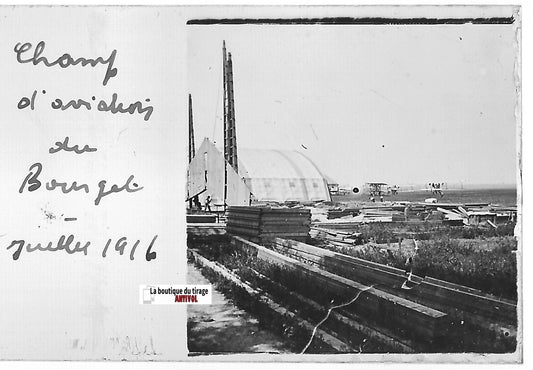 Champ
d'aviation
du
Bourget
-
Juillet 1916
La boutique du tirage
ANTIVOL